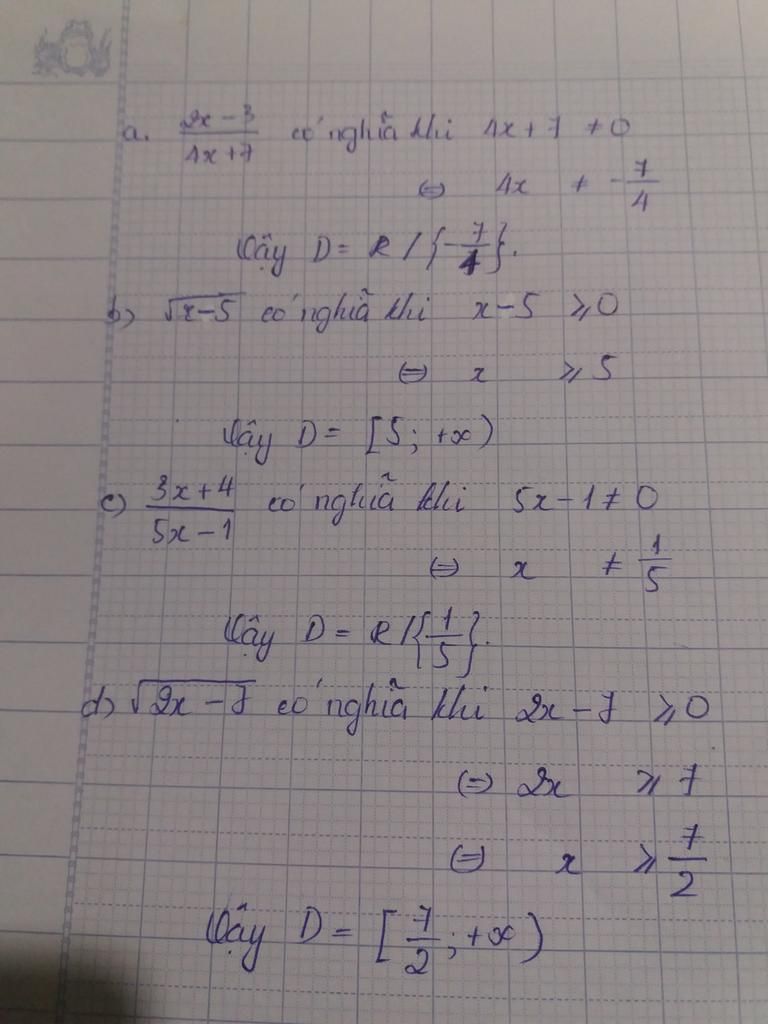 a. \frac{2x-3}{4x+7} có nghĩa khi 4x+7 ≠ 0
⇔ 4x ≠ -\frac{7}{4}
Vậy D = R / {-\frac{7}{4}}.
b) √(x-5) có nghĩa khi x-5 ≥ 0
⇔ x ≥ 5
Vậy D = [5; +∞)
c) \frac{3x+4}{5x-1} có nghĩa khi 5x-1 ≠ 0
⇔ x ≠ \frac{1}{5}
Vậy D = R / {\frac{1}{5}}.
d) √(2x-7) có nghĩa khi 2x-7 ≥ 0
⇔ 2x ≥ 7
⇔ x ≥ \frac{7}{2}
Vậy D = [\frac{7}{2}; +∞)